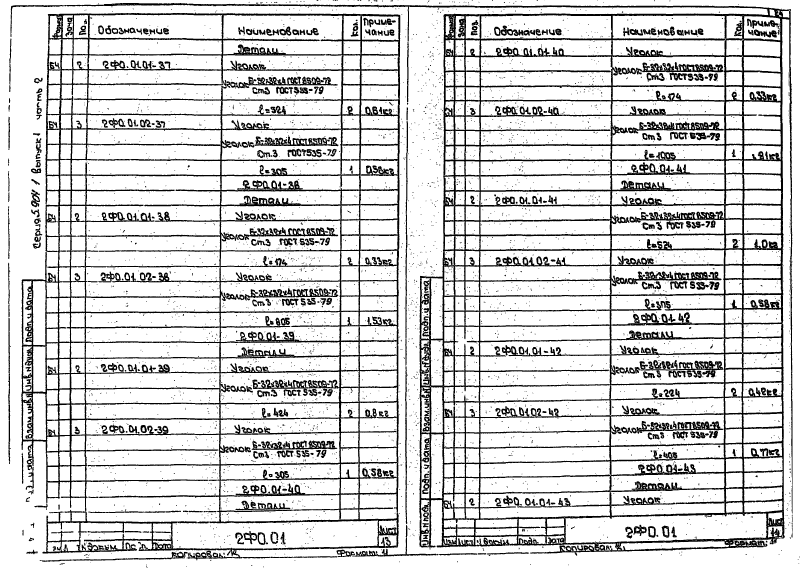 Формат Зона Поз. Обозначение Наименование Кол. Приме-
чание
Детали
БЧ 2 2ФО.01.01-37 Уголок
Уголок Б-32х32х4 ГОСТ 8509-72
Ст.3 ГОСТ 535-79
ℓ=324 2 0,61кг
БЧ 3 2ФО.01.02-37 Уголок
Уголок Б-32х32х4 ГОСТ 8509-72
Ст.3 ГОСТ 535-79
ℓ=305 1 0,58кг
2ФО.01-38
Детали
БЧ 2 2ФО.01.01-38 Уголок
Уголок Б-32х32х4 ГОСТ 8509-72
Ст.3 ГОСТ 535-79
ℓ=174 2 0,33кг
БЧ 3 2ФО.01.02-38 Уголок
Уголок Б-32х32х4 ГОСТ 8509-72
Ст.3 ГОСТ 535-79
ℓ=805 1 1,53кг
2ФО.01-39
Детали
БЧ 2 2ФО.01.01-39 Уголок
Уголок Б-32х32х4 ГОСТ 8509-72
Ст.3 ГОСТ 535-79
ℓ=424 2 0,8кг
БЧ 3 2ФО.01.02-39 Уголок
Уголок Б-32х32х4 ГОСТ 8509-72
Ст.3 ГОСТ 535-79
ℓ=305 1 0,58кг
2ФО.01-40
Детали
2ФО.01
Лист
13
Копировал:
Формат: 11
выпуск 1 часть 2
Взам.инв.№ Инв.№ дубл. Подп. и дата
Формат Зона Поз. Обозначение Наименование Кол. Приме-
чание
БЧ 2 2ФО.01.01-40 Уголок
Уголок Б-32х32х4 ГОСТ 8509-72
Ст.3 ГОСТ 535-79
ℓ=174 2 0,33кг
БЧ 3 2ФО.01.02-40 Уголок
Уголок Б-32х32х4 ГОСТ 8509-72
Ст.3 ГОСТ 535-79
ℓ=1005 1 1,91кг
2ФО.01-41
Детали
БЧ 2 2ФО.01.01-41 Уголок
Уголок Б-32х32х4 ГОСТ 8509-72
Ст.3 ГОСТ 535-79
ℓ=524 2 1,0кг
БЧ 3 2ФО.01.02-41 Уголок
Уголок Б-32х32х4 ГОСТ 8509-72
Ст.3 ГОСТ 535-79
ℓ=305 1 0,58кг
2ФО.01-42
Детали
БЧ 2 2ФО.01.01-42 Уголок
Уголок Б-32х32х4 ГОСТ 8509-72
Ст.3 ГОСТ 535-79
ℓ=224 2 0,42кг
БЧ 3 2ФО.01.02-42 Уголок
Уголок Б-32х32х4 ГОСТ 8509-72
Ст.3 ГОСТ 535-79
ℓ=405 1 0,77кг
2ФО.01-43
Детали
БЧ 2 2ФО.01.01-43 Уголок
2ФО.01
Лист
14
Копировал:
Формат: 11
Инв.№ подл. Подп. и дата Взам.инв.№ Инв.№ дубл. Подп. и дата